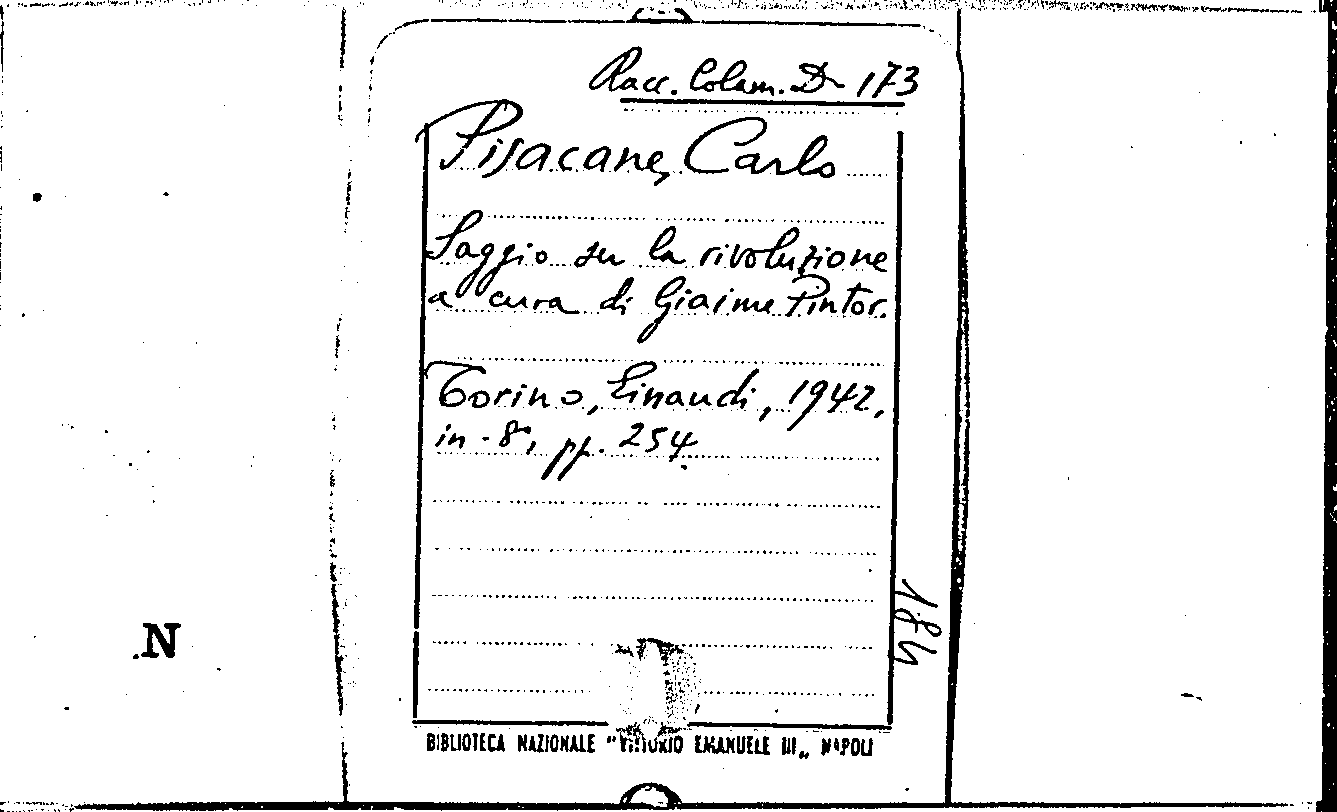 Racc. Colam. D 173
Pisacane, Carlo
Saggio su la rivoluzione
a cura di Giaime Pintor.
Torino, Einaudi, 1942.
in-8°, pp. 254.
184
N
BIBLIOTECA NAZIONALE "VITTORIO EMANUELE III„ NAPOLI